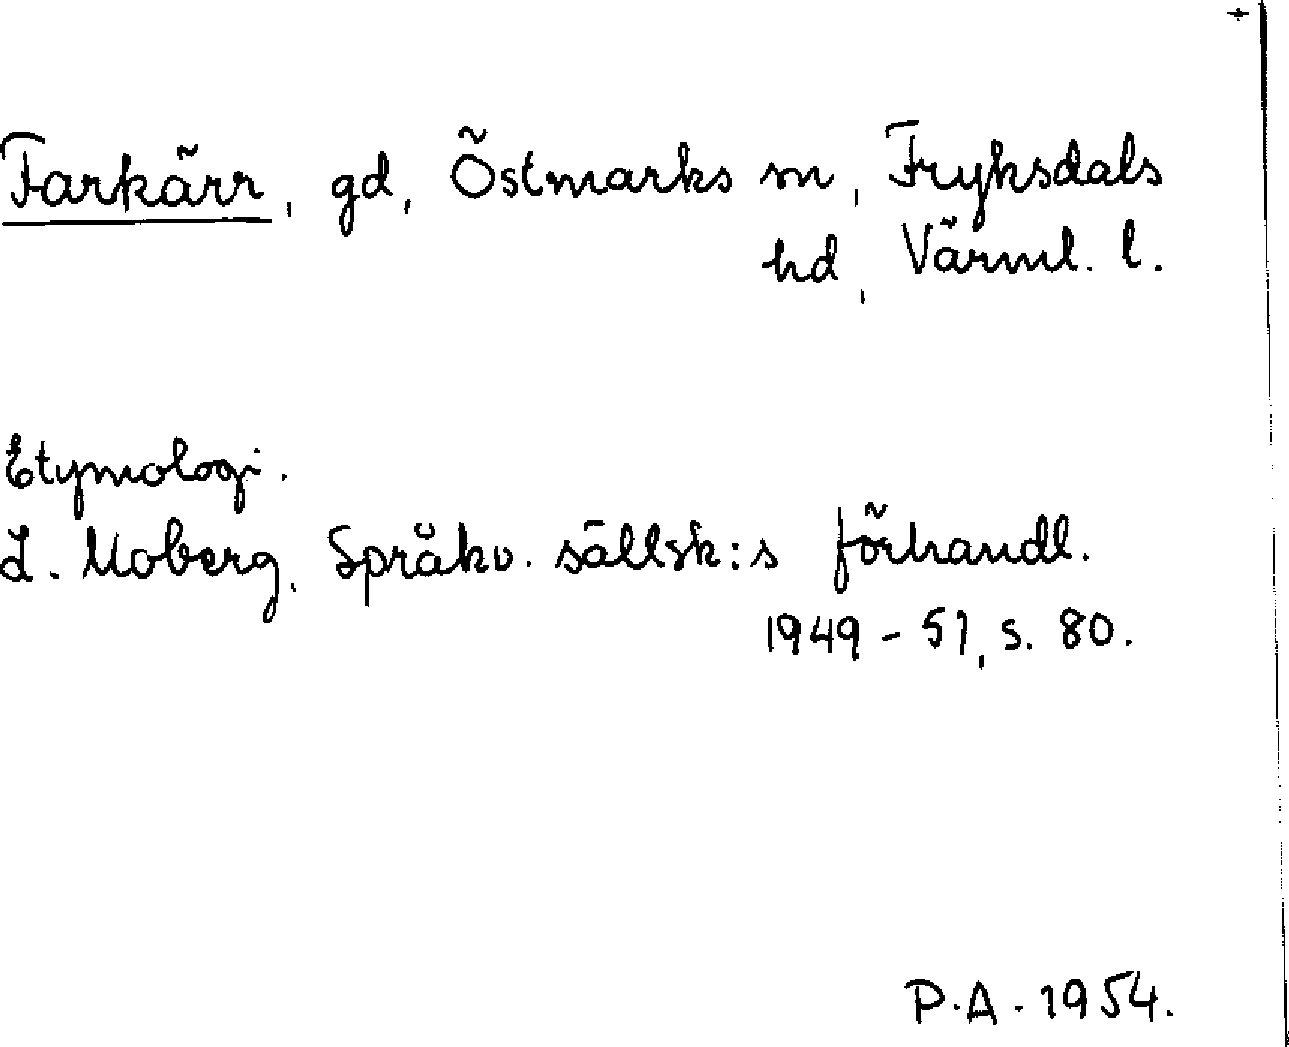 Farkärr, gd, Östmarks sn, Fryksdals
hd, Värml. l.
Etymologi.
L. Moberg, Språkv. sällsk:s förhandl.
1949-51, s. 80.
P.A. 1954.